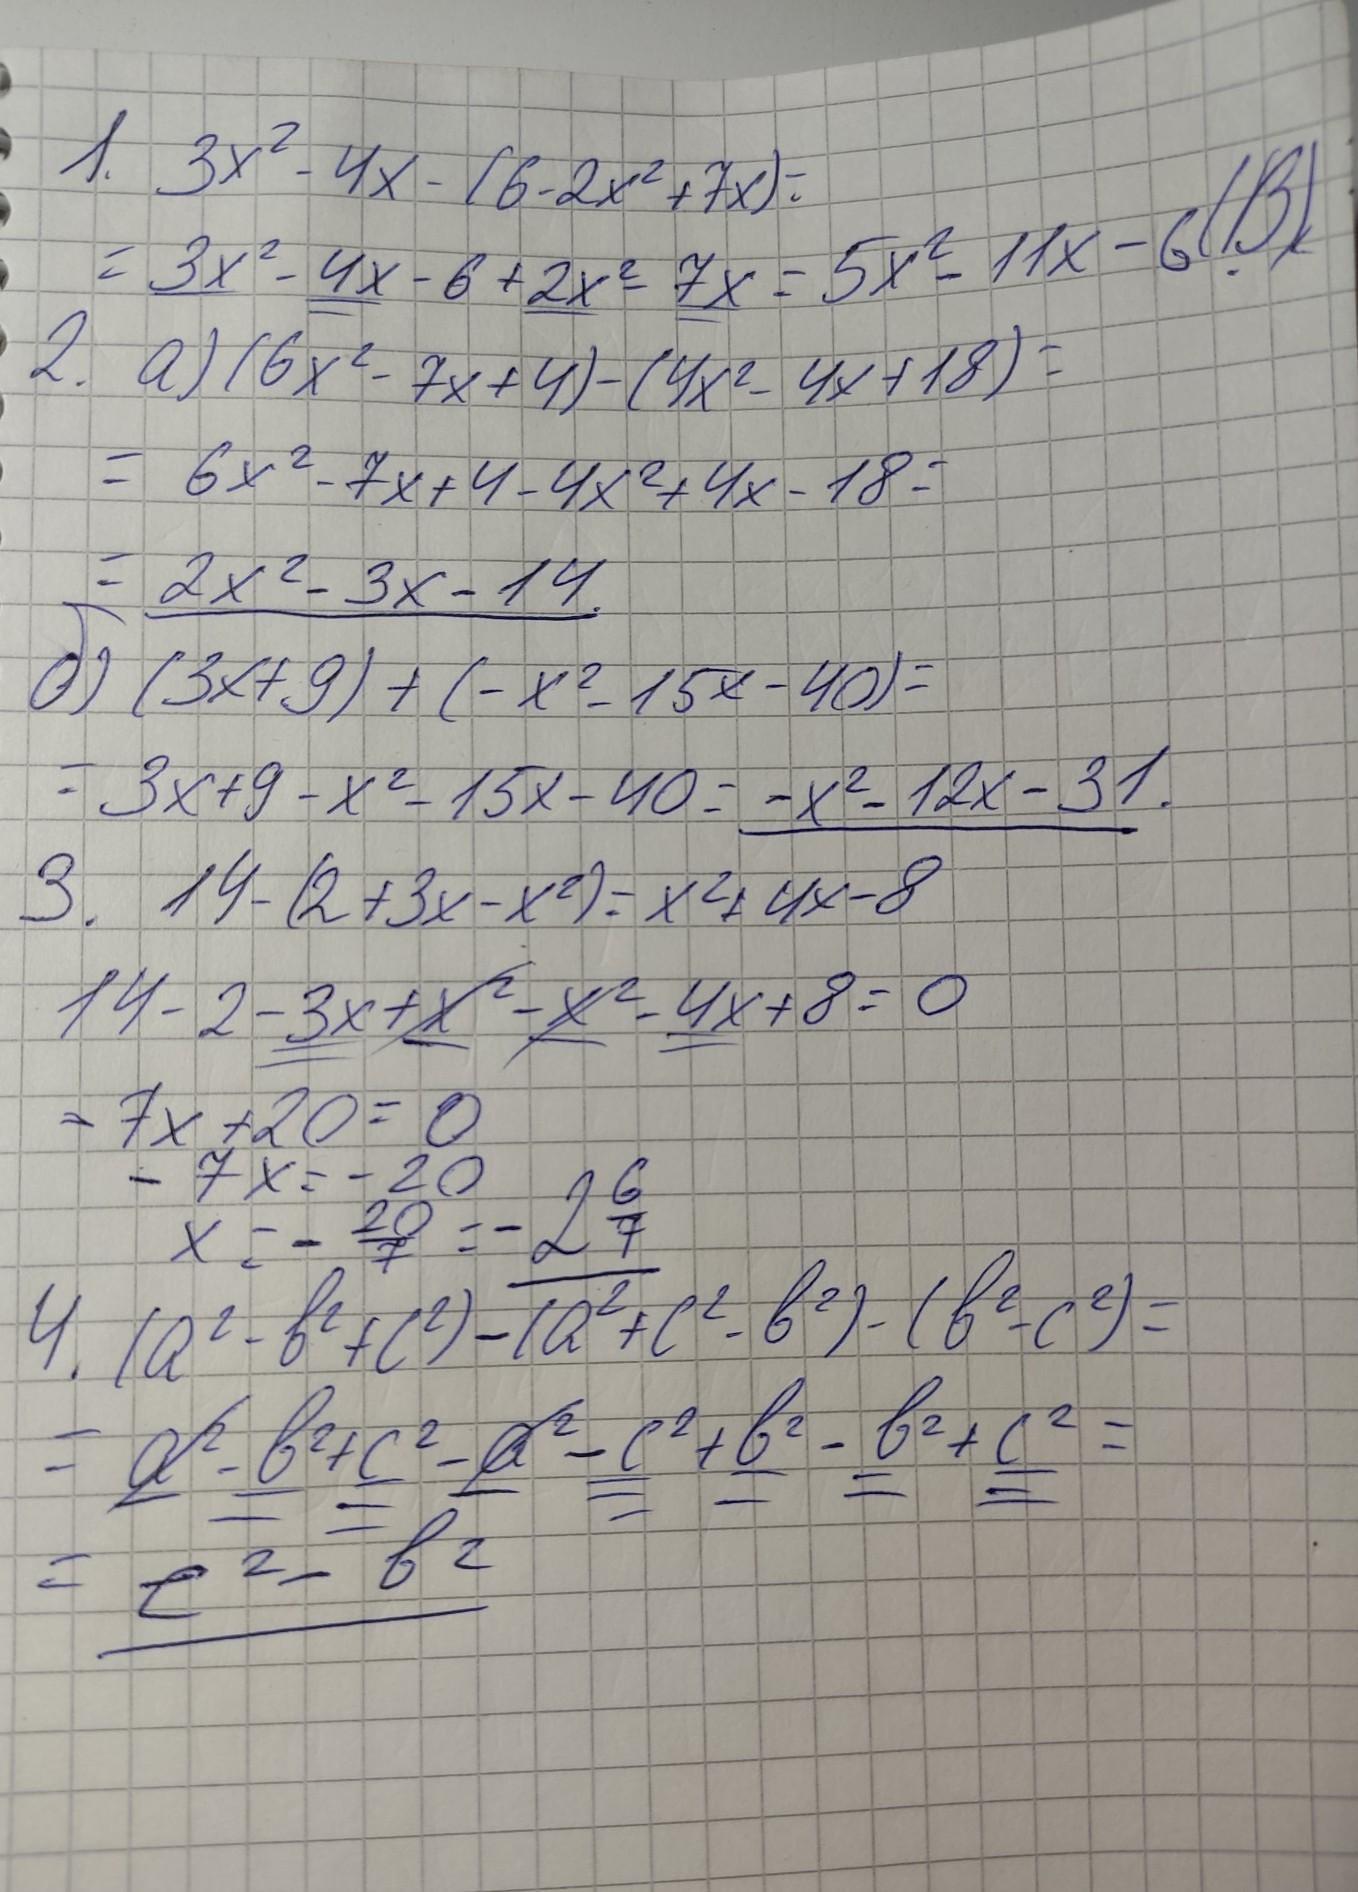 1. 3x² - 4x - (6 - 2x² + 7x) =
= 3x² - 4x - 6 + 2x² - 7x = 5x² - 11x - 6 (В)
2. а) (6x² - 7x + 4) - (4x² - 4x + 18) =
= 6x² - 7x + 4 - 4x² + 4x - 18 =
= 2x² - 3x - 14.
б) (3x + 9) + (-x² - 15x - 40) =
= 3x + 9 - x² - 15x - 40 = -x² - 12x - 31.
3. 14 - (2 + 3x - x²) = x² + 4x - 8
14 - 2 - 3x + x² - x² - 4x + 8 = 0
- 7x + 20 = 0
- 7x = - 20
x = - 20/7 = - 2 6/7
4. (a² - b² + c²) - (a² + c² - b²) - (b² - c²) =
= a² - b² + c² - a² - c² + b² - b² + c² =
= c² - b²